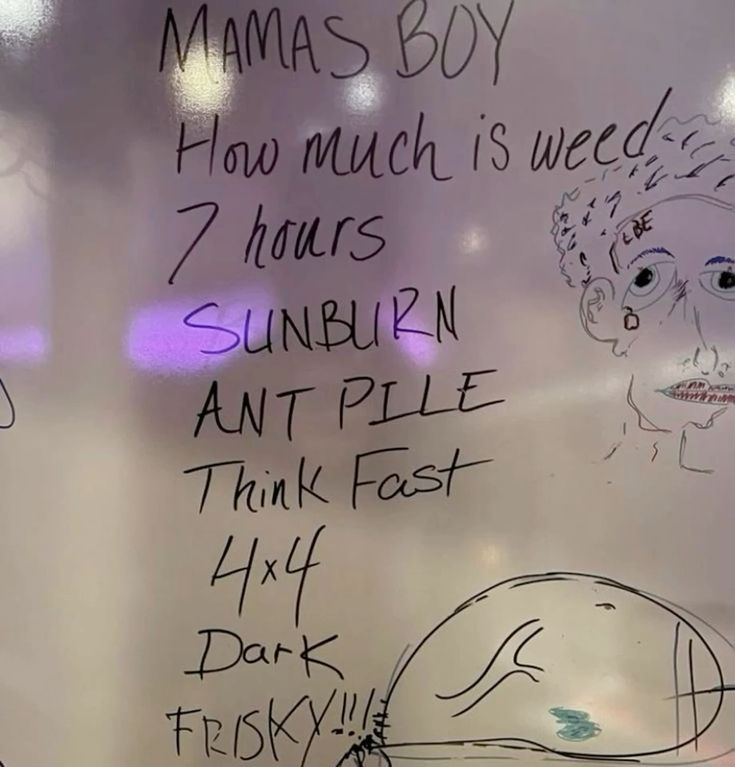 MAMAS BOY
How much is weed
7 hours
SUNBURN
ANT PILE
Think Fast
4x4
Dark
FRISKY!!!